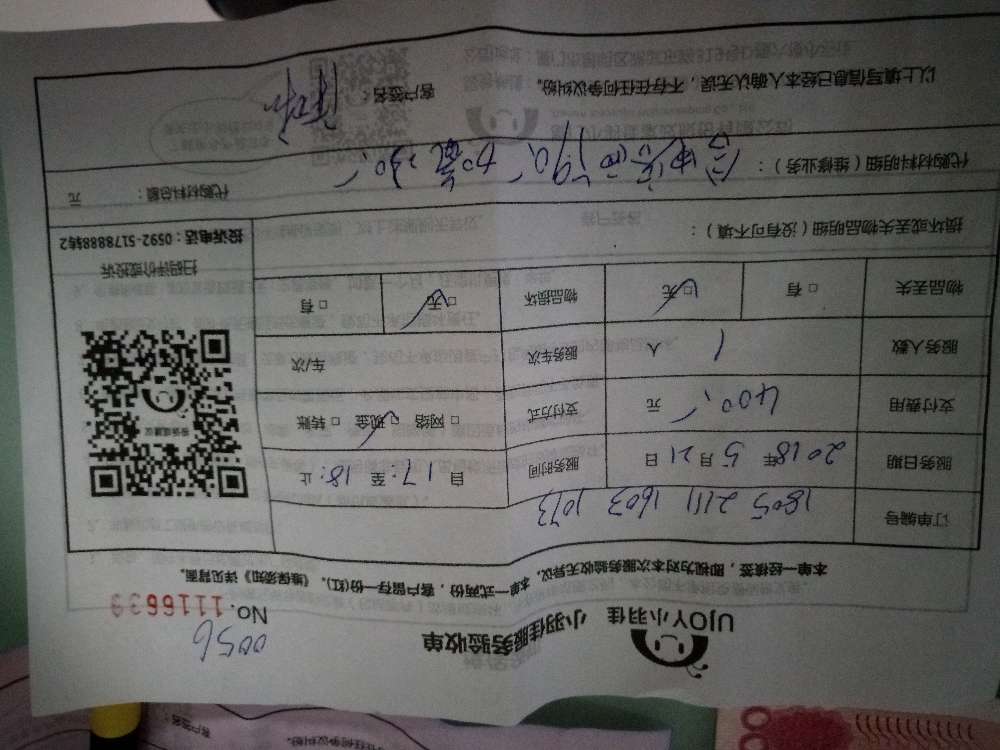 0056
UJOY小羽佳 小羽佳服务验收单
No. 1116639
本单一经核签，即视为对本次服务验收无异议。本单一式两份，客户留存一份(红)。《维保须知》详见背面。
订单编号 1805 2111 1603 1073
服务日期 2018年 5月21日 服务时间 自 17: 至 18: 止
支付费用 400 元 支付方式 □ 网络 □ 现金 □ 转账
服务人数 1 人 服务车次 车/次
物品丢失 □ 有 □ 无 物品损坏 □ 无 □ 有
扫码评价或投诉
投诉电话：0592-5178888转2
损坏或丢失物品明细（没有可不填）：
代购材料明细（维修业务）：
代购材料总额： 元
以上填写信息已经本人确认无误，不存在任何争议纠纷。 客户签名：